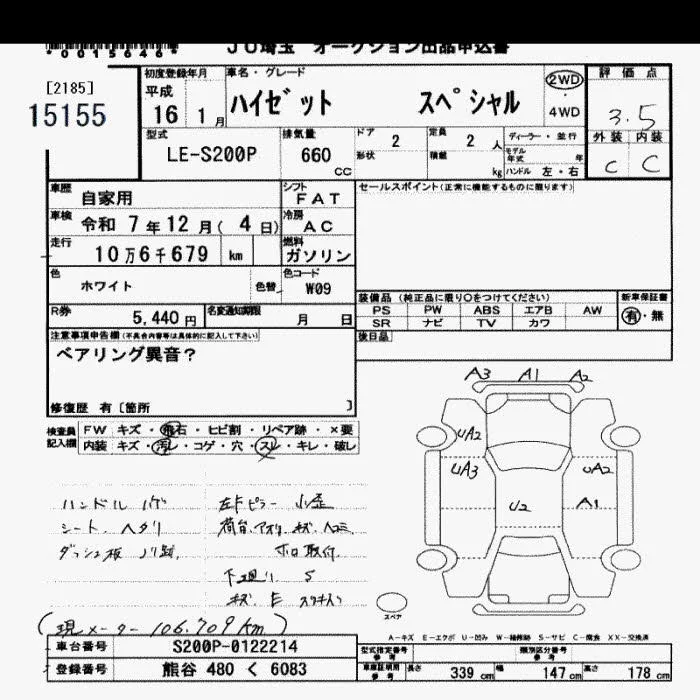 *0015646*
JU埼玉 オークション出品申込書
[2185]
15155
初度登録年月
平成
16 1月
車名・グレード
ハイゼット スペシャル
2WD
・
4WD
評価点
3.5
外装 内装
C C
型式
LE-S200P
排気量
660 CC
ドア 2
形状
定員 2 人
積載 kg
ディーラー・並行
モデル年式 年
ハンドル 左・右
車歴 自家用
シフト FAT
車検 令和 7年12月(4日)
冷房 AC
走行 10万6千679 km
燃料 ガソリン
色 ホワイト 色替
色コード W09
R券 5,440円
名変通知期限 月 日
セールスポイント(正常に機能するものに限ります)
装備品(純正品に限り○をつけてください)
PS PW ABS エアB AW
SR ナビ TV カワ
新車保証書
有・無
後日品
注意事項申告欄(不具合内容等は具体的に記入して下さい)
ベアリング異音?
修復歴 有[箇所 ]
検査員記入欄
FW キズ・飛石・ヒビ割・リペア跡・×要
内装 キズ・汚レ・コゲ・穴・スレ・キレ・破レ
ハンドル ハゲ
シート、ヘタリ
ダッシュ板 ノリ跡
左Fピラー 小歪
荷台、アオリ キズ ヘコミ
ホロ取付
下廻り S
キズ、E
(現メーター 106.709km)
A3 A1 A2
UA2
UA3
UA2
U2
A1
スペア
A-キズ E-エクボ U-凹み W-補修跡 S-サビ C-腐食 XX-交換済
車台番号 S200P-0122214
登録番号 熊谷 480 く 6083
型式指定番号 参考
類別区分番号 参考
車庫証明用 参考
長さ 339 cm
幅 147 cm
高さ 178 cm